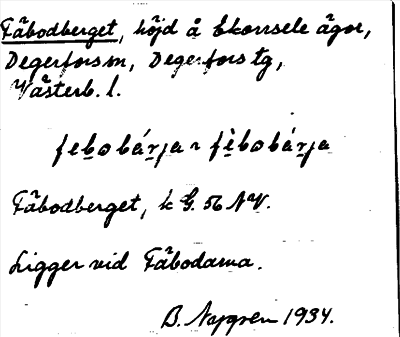 Fäbodberget, höjd å Ekorrsele ägor,
Degerfors sn, Degerfors tg,
Västerb. l.
febobárja ~ fèbobárja
Fäbodberget, k G. 56 NV.
Ligger vid Fäbodarna.
B. 1934.